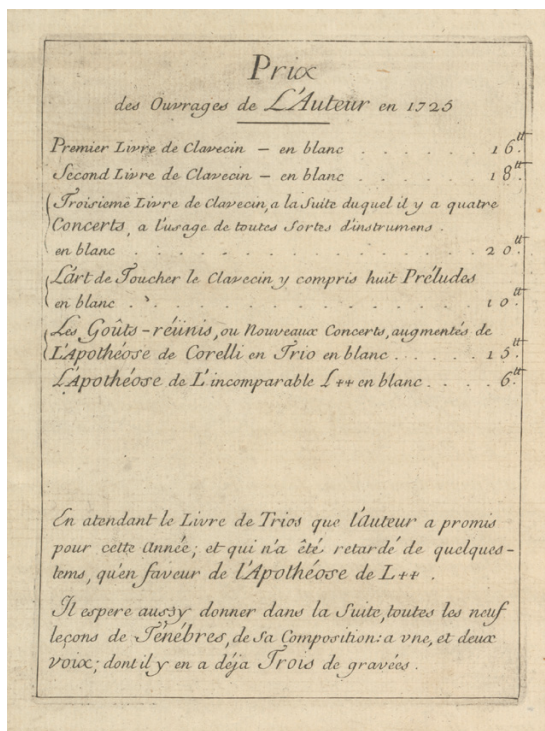 Prix
des Ouvrages de L'Auteur en 1725
Premier Livre de Clavecin – en blanc . . . . . . . 16.tt
Second Livre de Clavecin – en blanc . . . . . . . 18.tt
Troisieme Livre de Clavecin, a la Suite duquel il y a quatre
Concerts, a l'usage de toutes Sortes d'instrumens .
en blanc . . . . . . . . . . . . . . . . . 20.tt
L'art de Toucher le Clavecin y compris huit Préludes
en blanc . . . . . . . . . . . . . . . . 10.tt
Les Goûts-réünis, ou Nouveaux Concerts, augmentés de
L'Apothéose de Corelli en Trio en blanc . . . . . . 15.tt
L'Apothéose de L'incomparable L++ en blanc . . . . 6.tt
En atendant le Livre de Trios que l'auteur a promis
pour cette année; et qui n'a été retardé de quelques-
tems, qu'en faveur de l'Apothéose de L++ .
Il espere aussy donner dans la Suite, toutes les neuf
leçons de Ténébres, de sa Composition: a vne, et deux
voix; dont il y en a déja Trois de gravées .